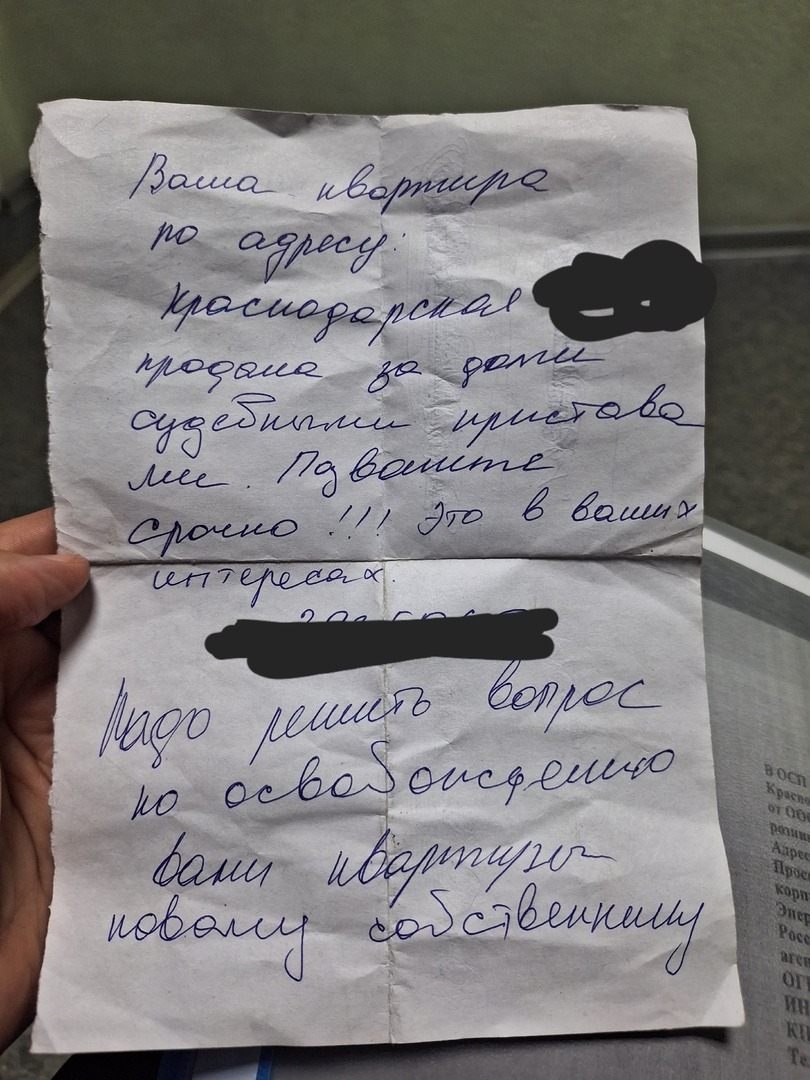 Ваша квартира
по адресу:
Краснодарская
продана за долги
судебными пристава
ми. Позвоните
срочно !!! Это в ваших
интересах.
Надо решить вопрос
по освобождению
вами квартиры
новому собственнику
В ОСП
Красно
от ОО
розни
Адрес
Прос
корп
Энер
Росс
аген
ОГ
ИН
КП
Те